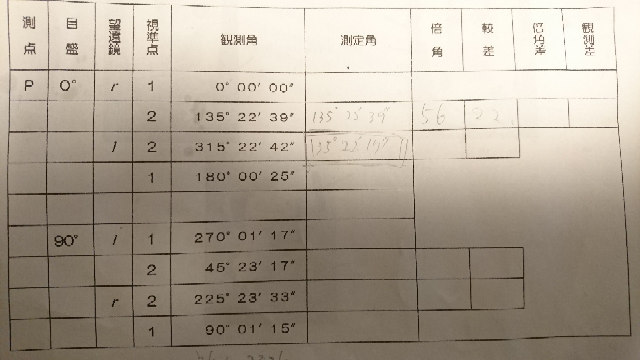 測点 目盛 望遠鏡 視準点 観測角 測定角 倍角 較差 倍角差 観測差
P 0° r 1 0° 00′ 00″
2 135° 22′ 39″ 135° 22′ 39″ 56 22
l 2 315° 22′ 42″ 135° 22′ 17″
1 180° 00′ 25″
90° l 1 270° 01′ 17″
2 45° 23′ 17″
r 2 225° 23′ 33″
1 90° 01′ 15″